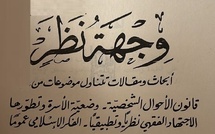 وجهة نظر
أبحاث ومقالات تتناول موضوعات من
قانون الأحوال الشخصية - وضعية الأسرة وتطورها
الاجتهاد الفقهي نظرياً وتطبيقياً - الفكر الإسلامي عموماً